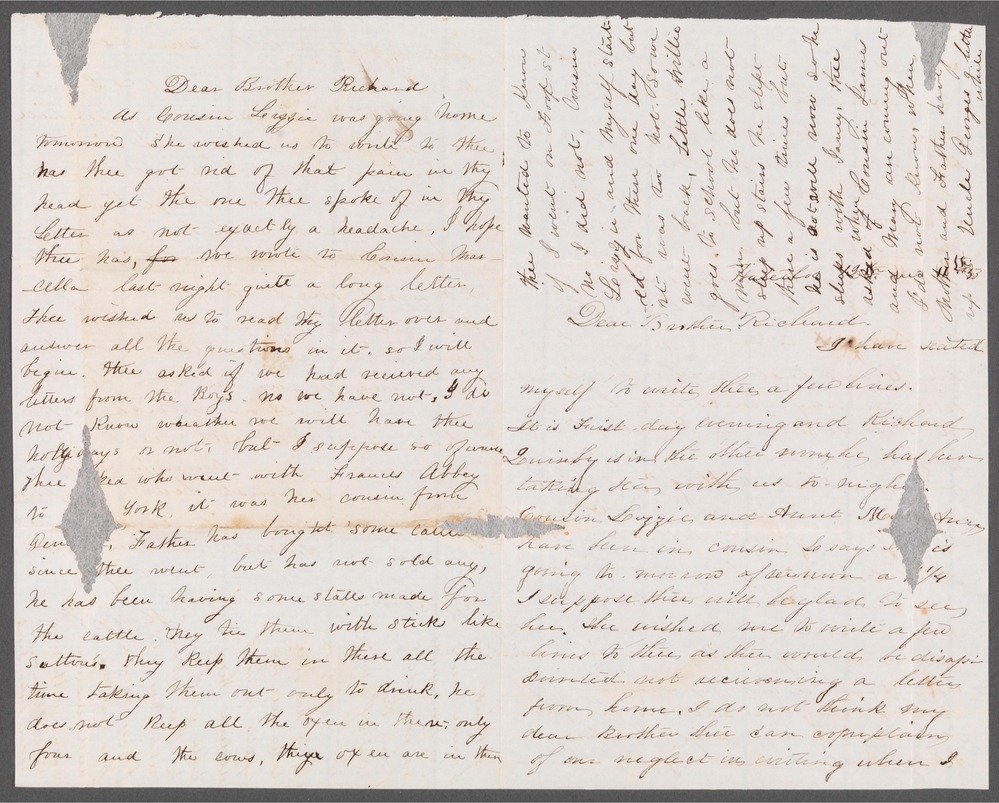 Dear Brother Richard
As Cousin Lizzie was going home
tomorrow she wished us to write to thee
has thee got rid of that pain in thy
head yet the one thee spoke of in thy
letter as not exactly a headache, I hope
thee has, for we wrote to Cousin Mar-
cella last night quite a long letter,
thee wished us to read thy letter over and
answer all the questions in it. so I will
begin. thee asked if we had received any
letters from the Boys. no we have not, I do
not know weather we will have thee
hollydays or not, but I suppose so of course
thee ked who went with Frances Abbey
to York, it was her cousin from
Pen Father has bought some cattle
since thee went, but has not sold any,
he has been having some stalls made for
the cattle. they tie them with sticks like
Suttons. they keep them in there all the
time taking them out only to drink, he
does not keep all the oxen in there, only
four and the cows, three oxen are in then
thee wanted to know
if I went on Foot st
No I did not. Cousin
Lizzie and Myself start
ed for there one day but
it was too hot. So we
went back, little Willie
goes to school like a
man but he does not
sleep up stairs he slept
there a few times but
he is at well now so he
sleeps with Janey, thee
asked when Cousin James
and Mary an coming out
I do not know, when
Mother and Father having
up Uncle Georges letter
Dear Brother Richard.
I have seated
myself to write thee a few lines.
It is First day evening and Richard
Quinby is in the other room, he has been
taking tea with us to-night.
Cousin Lizzie and Aunt Ann
have been in, cousin L says is
going to-morrow afternoon a 1/4
I suppose thee will be glad to see
her. She wished me to write a few
lines to thee as thee would be disap-
pointed not recieveing a letter
from home. I do not think my
dear Brother thee can complain
of our neglect in writing when I